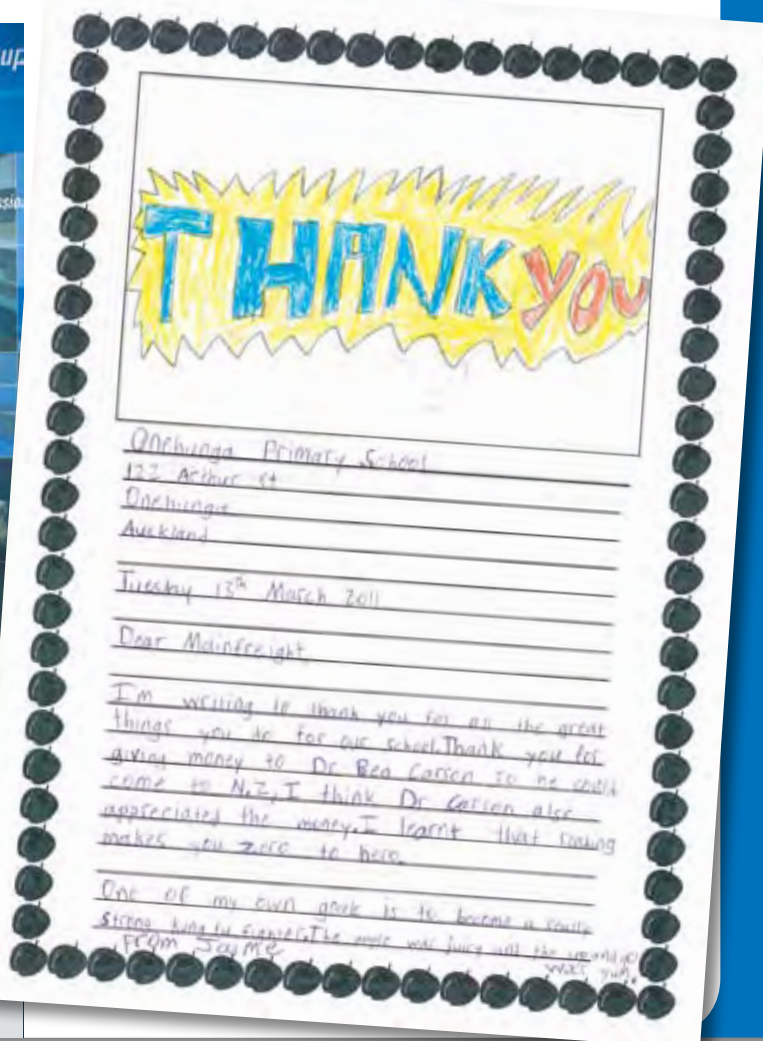 THANK YOU
Onehunga Primary School
122 Arthur St
Onehunga
Auckland
Tuesday 13th March 2011
Dear Mainfreight,
I'm writing to thank you for all the great
things you do for our school.Thank you for
giving money to Dr Ben Carson so he could
come to N.Z, I think Dr Carson also
appreciated the money.I learnt that
makes you zero to hero.
One of my own goals is to become a really
strong kung fu fighter.The apple was juicy and the
was yum.
From Jayme
up